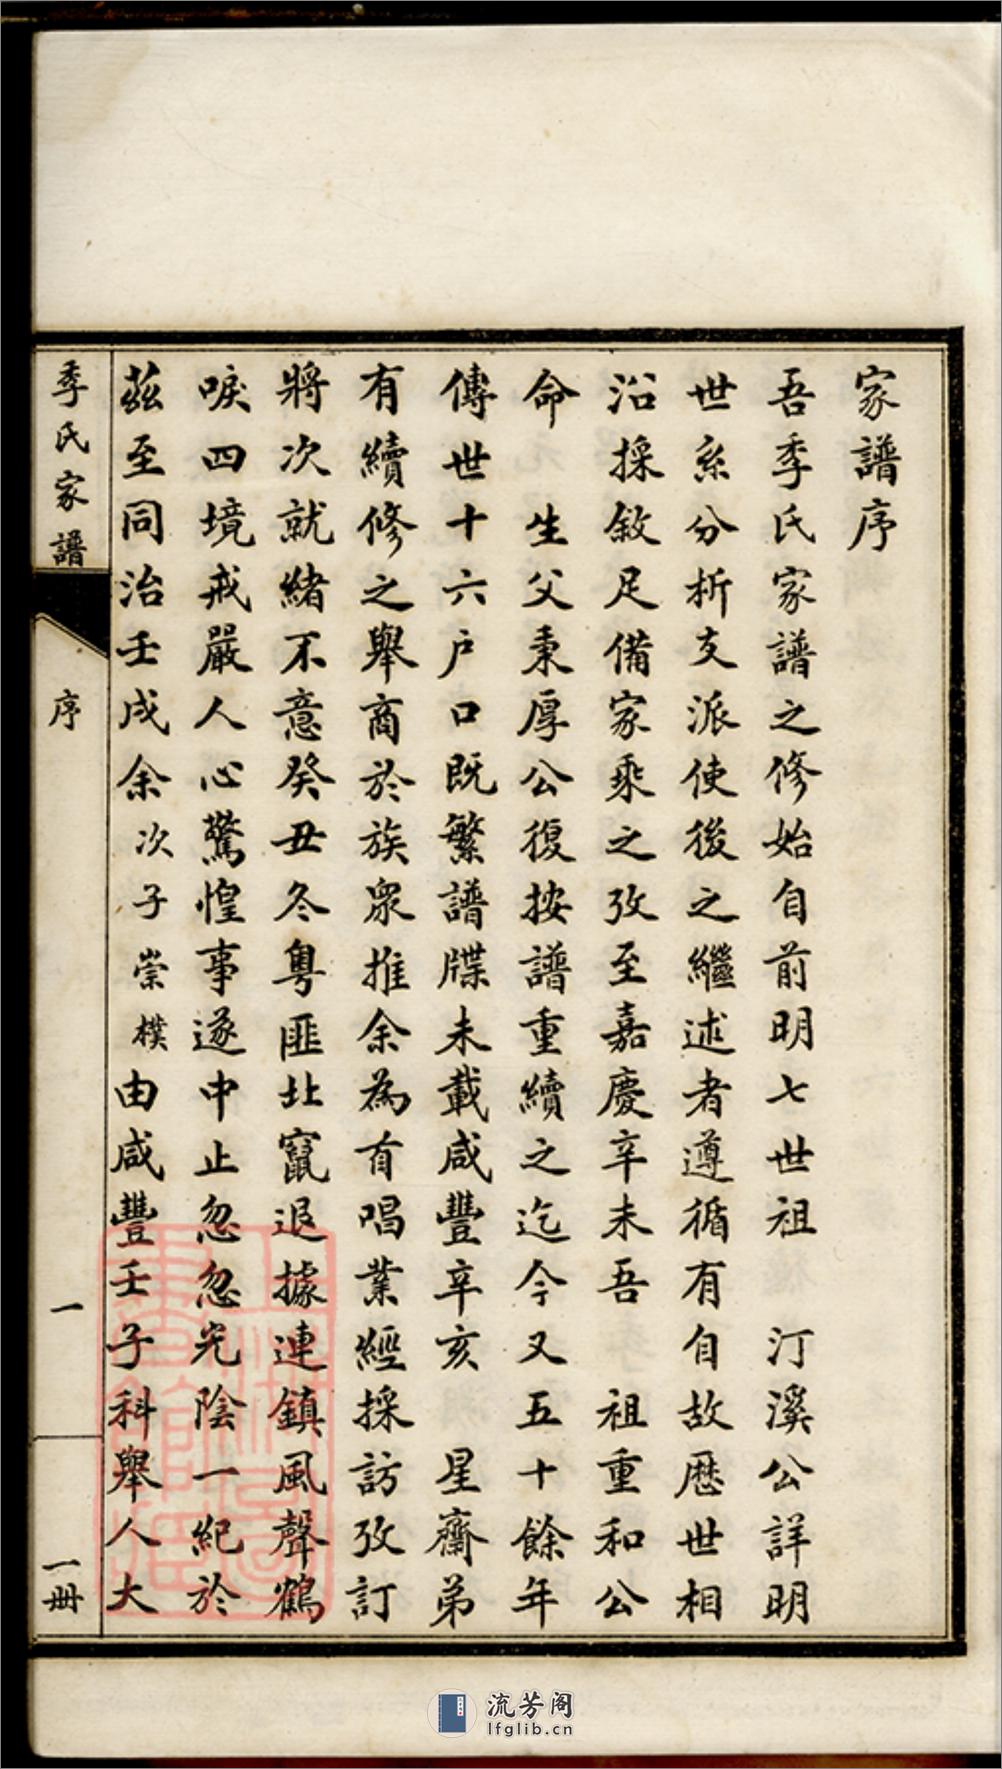 家譜序
吾季氏家譜之修始自前明七世祖　汀溪公詳明
世系分析支派使後之繼述者遵循有自故歷世相
沿採敘足備家乘之攷至嘉慶辛未吾　祖重和公
命　生父秉厚公復按譜重續之迄今又五十餘年
傳世十六戶口既繁譜牒未載咸豐辛亥　星齋弟
有續修之舉商於族衆推余為首唱業經採訪攷訂
將次就緒不意癸丑冬粵匪北竄退據連鎮風聲鶴
唳四境戒嚴人心驚惶事遂中止忽忽光陰一紀於
茲至同治壬戌余次子崇樸由咸豐壬子科舉人大
季氏家譜
序
一
一冊
流芳阁
lfglib.cn